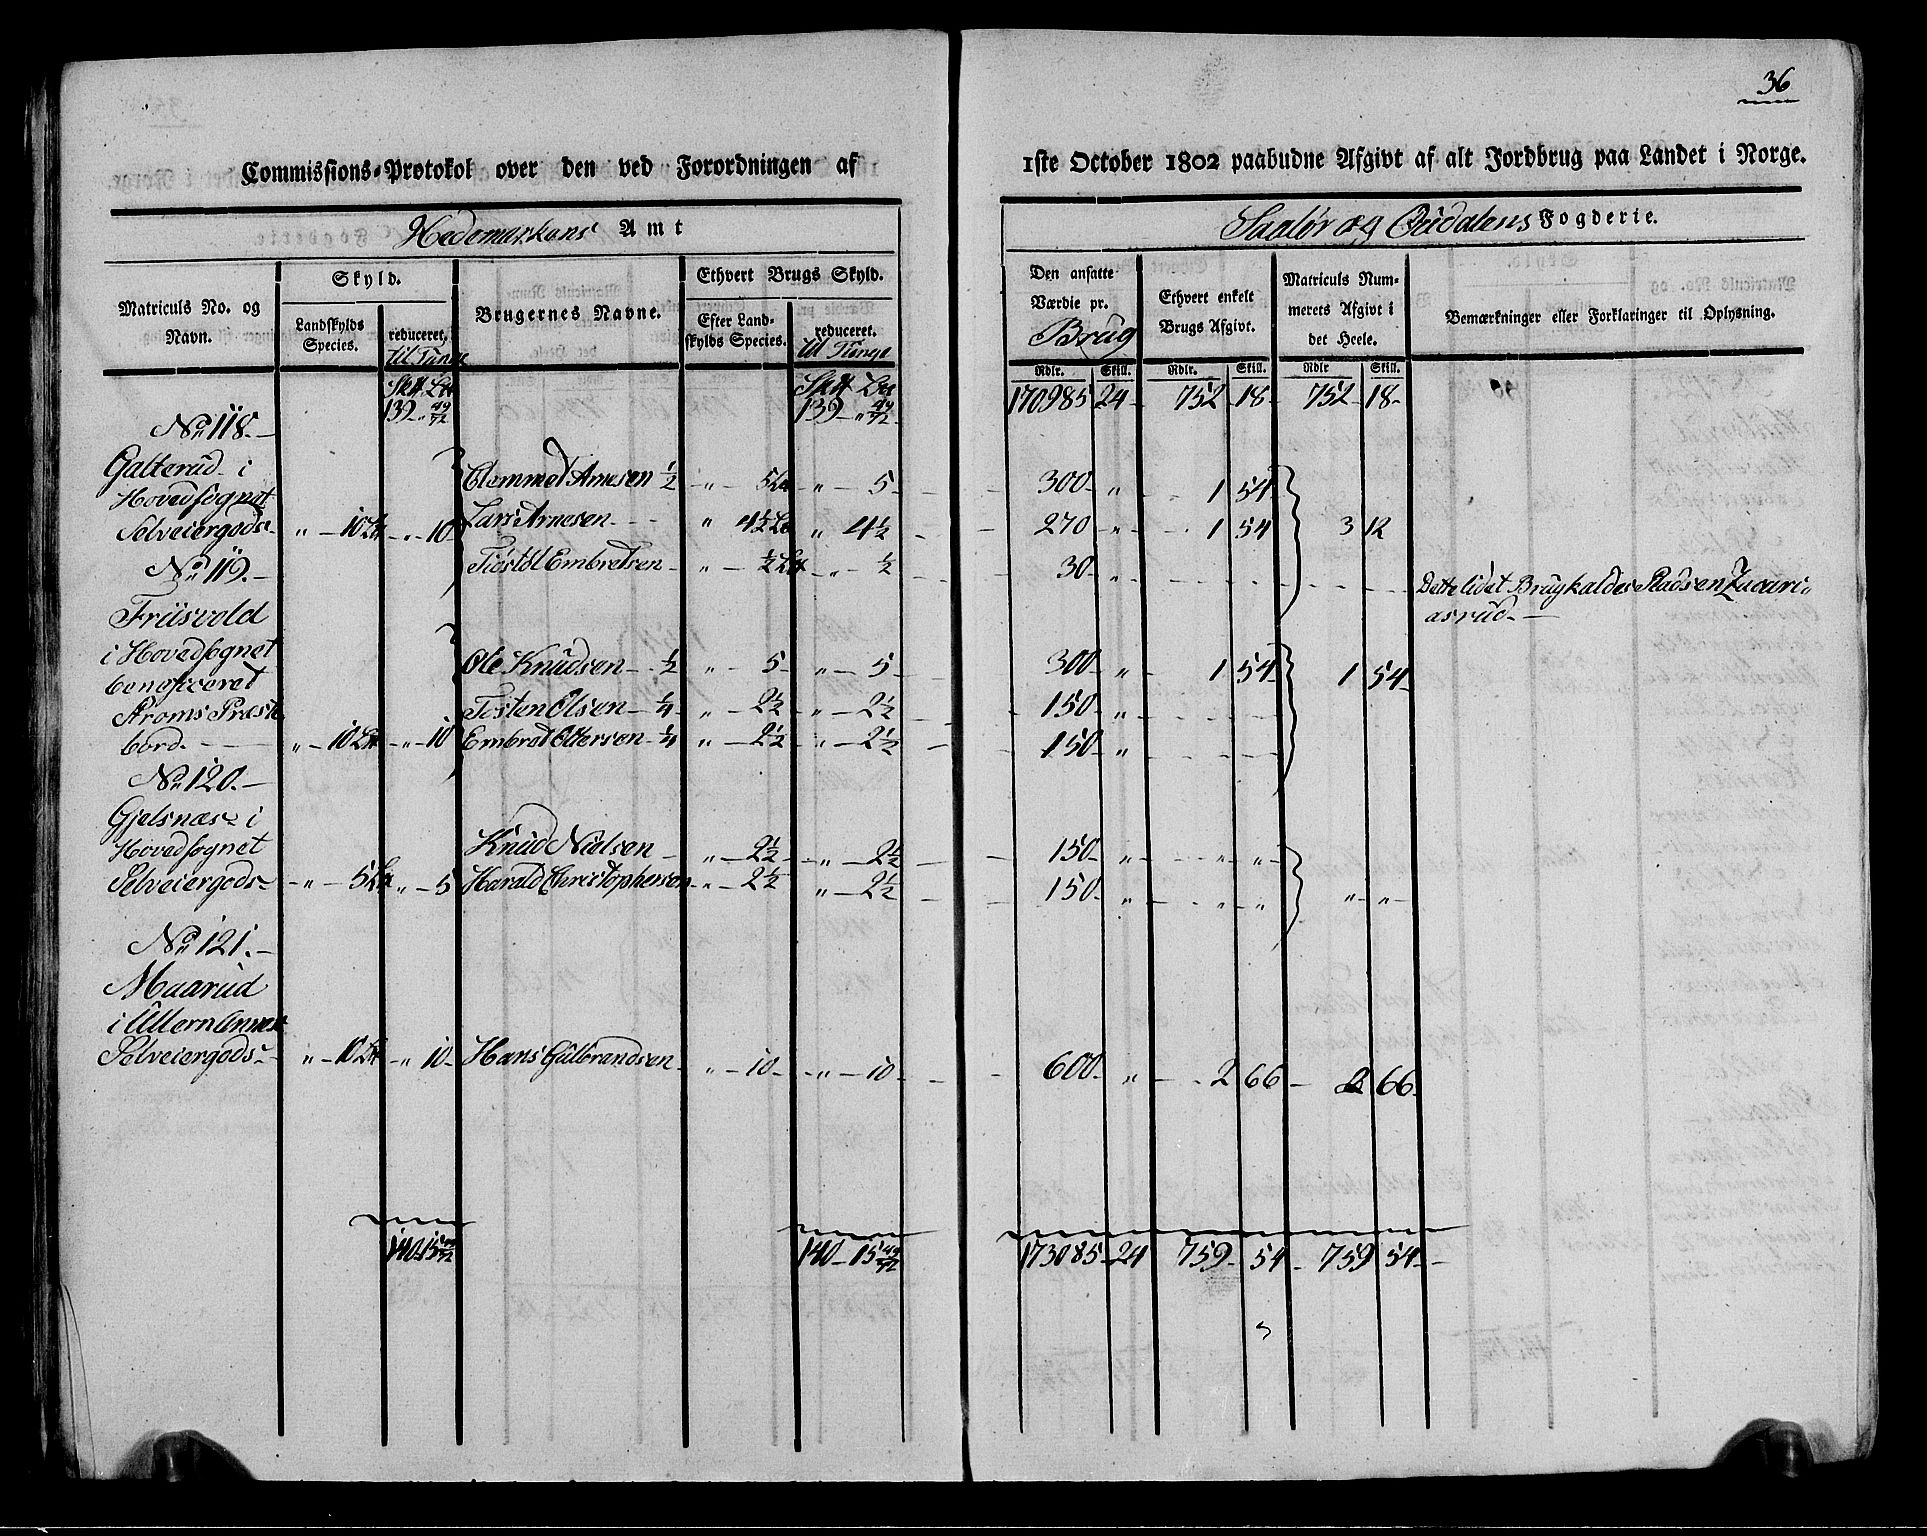 36
Commissions-Protokol over den ved Forordningen af 1ste October 1802 paabudne Afgivt af alt Jordbrug paa Landet i Norge.
Hedemarkens Amt
Soløer og Oudalens Fogderie.
Matriculs No. og Navn.
Skyld.
Landskylds Species.
reduceret, til Tunge
Brugernes Navne.
Ethvert Brugs Skyld.
Efter Landskylds Species.
reduceret. til Tunge
Den ansatte Værdie pr. Brug
Ethvert enkelt Brugs Afgivt.
Matriculs Nummerets Afgivt i det Heele.
Bemærkninger eller Forklaringer til Oplysning.
Rdlr. Skill. Rdlr. Skill. Rdlr Skill.
139 " 49/72 139 " 49/72 170985 24 752 18 752 18
No 118.
Galterud i
Hovedsognet
Selveiergods " 10 " 10
Clemmet Arnesen 1/2 " 5 " 5 300 " 1 54
Lars Arnesen " 4 1/2 " 4 1/2 270 " 1 54 3 12
Tiøstøl Embretsen " 1/2 " 1/2 30 "
Dette lidet Brug kaldes Pladsen Zacari-
asrud.
No 119.
Friisvold
i Hovedsognet
beneficeret
Stroms Præste
bord. " 10 " 10
Ole Knudsen 1/2 " 5 " 5 300 " 1 54 1 54
Tosten Olsen 1/4 " 2 1/2 " 2 1/2 150 "
Embret Ottersen 1/4 " 2 1/2 " 2 1/2 150 "
No 120.
Gjelsnæs i
Hovedsognet
Selveiergods " 5 " 5
Knud Nielsen " 2 1/2 " 2 1/2 150 " " "
Harald Christophersen " 2 1/2 " 2 1/2 150 " " " " "
No 121.
Maarud
i Ullern Annex
Selveiergods " 10 " 10 Hans Gulbrandsen " 10 " 10 600 " 2 66 2 66
140 15 49/72 140 15 49/72 173085 24 759 54 759 54